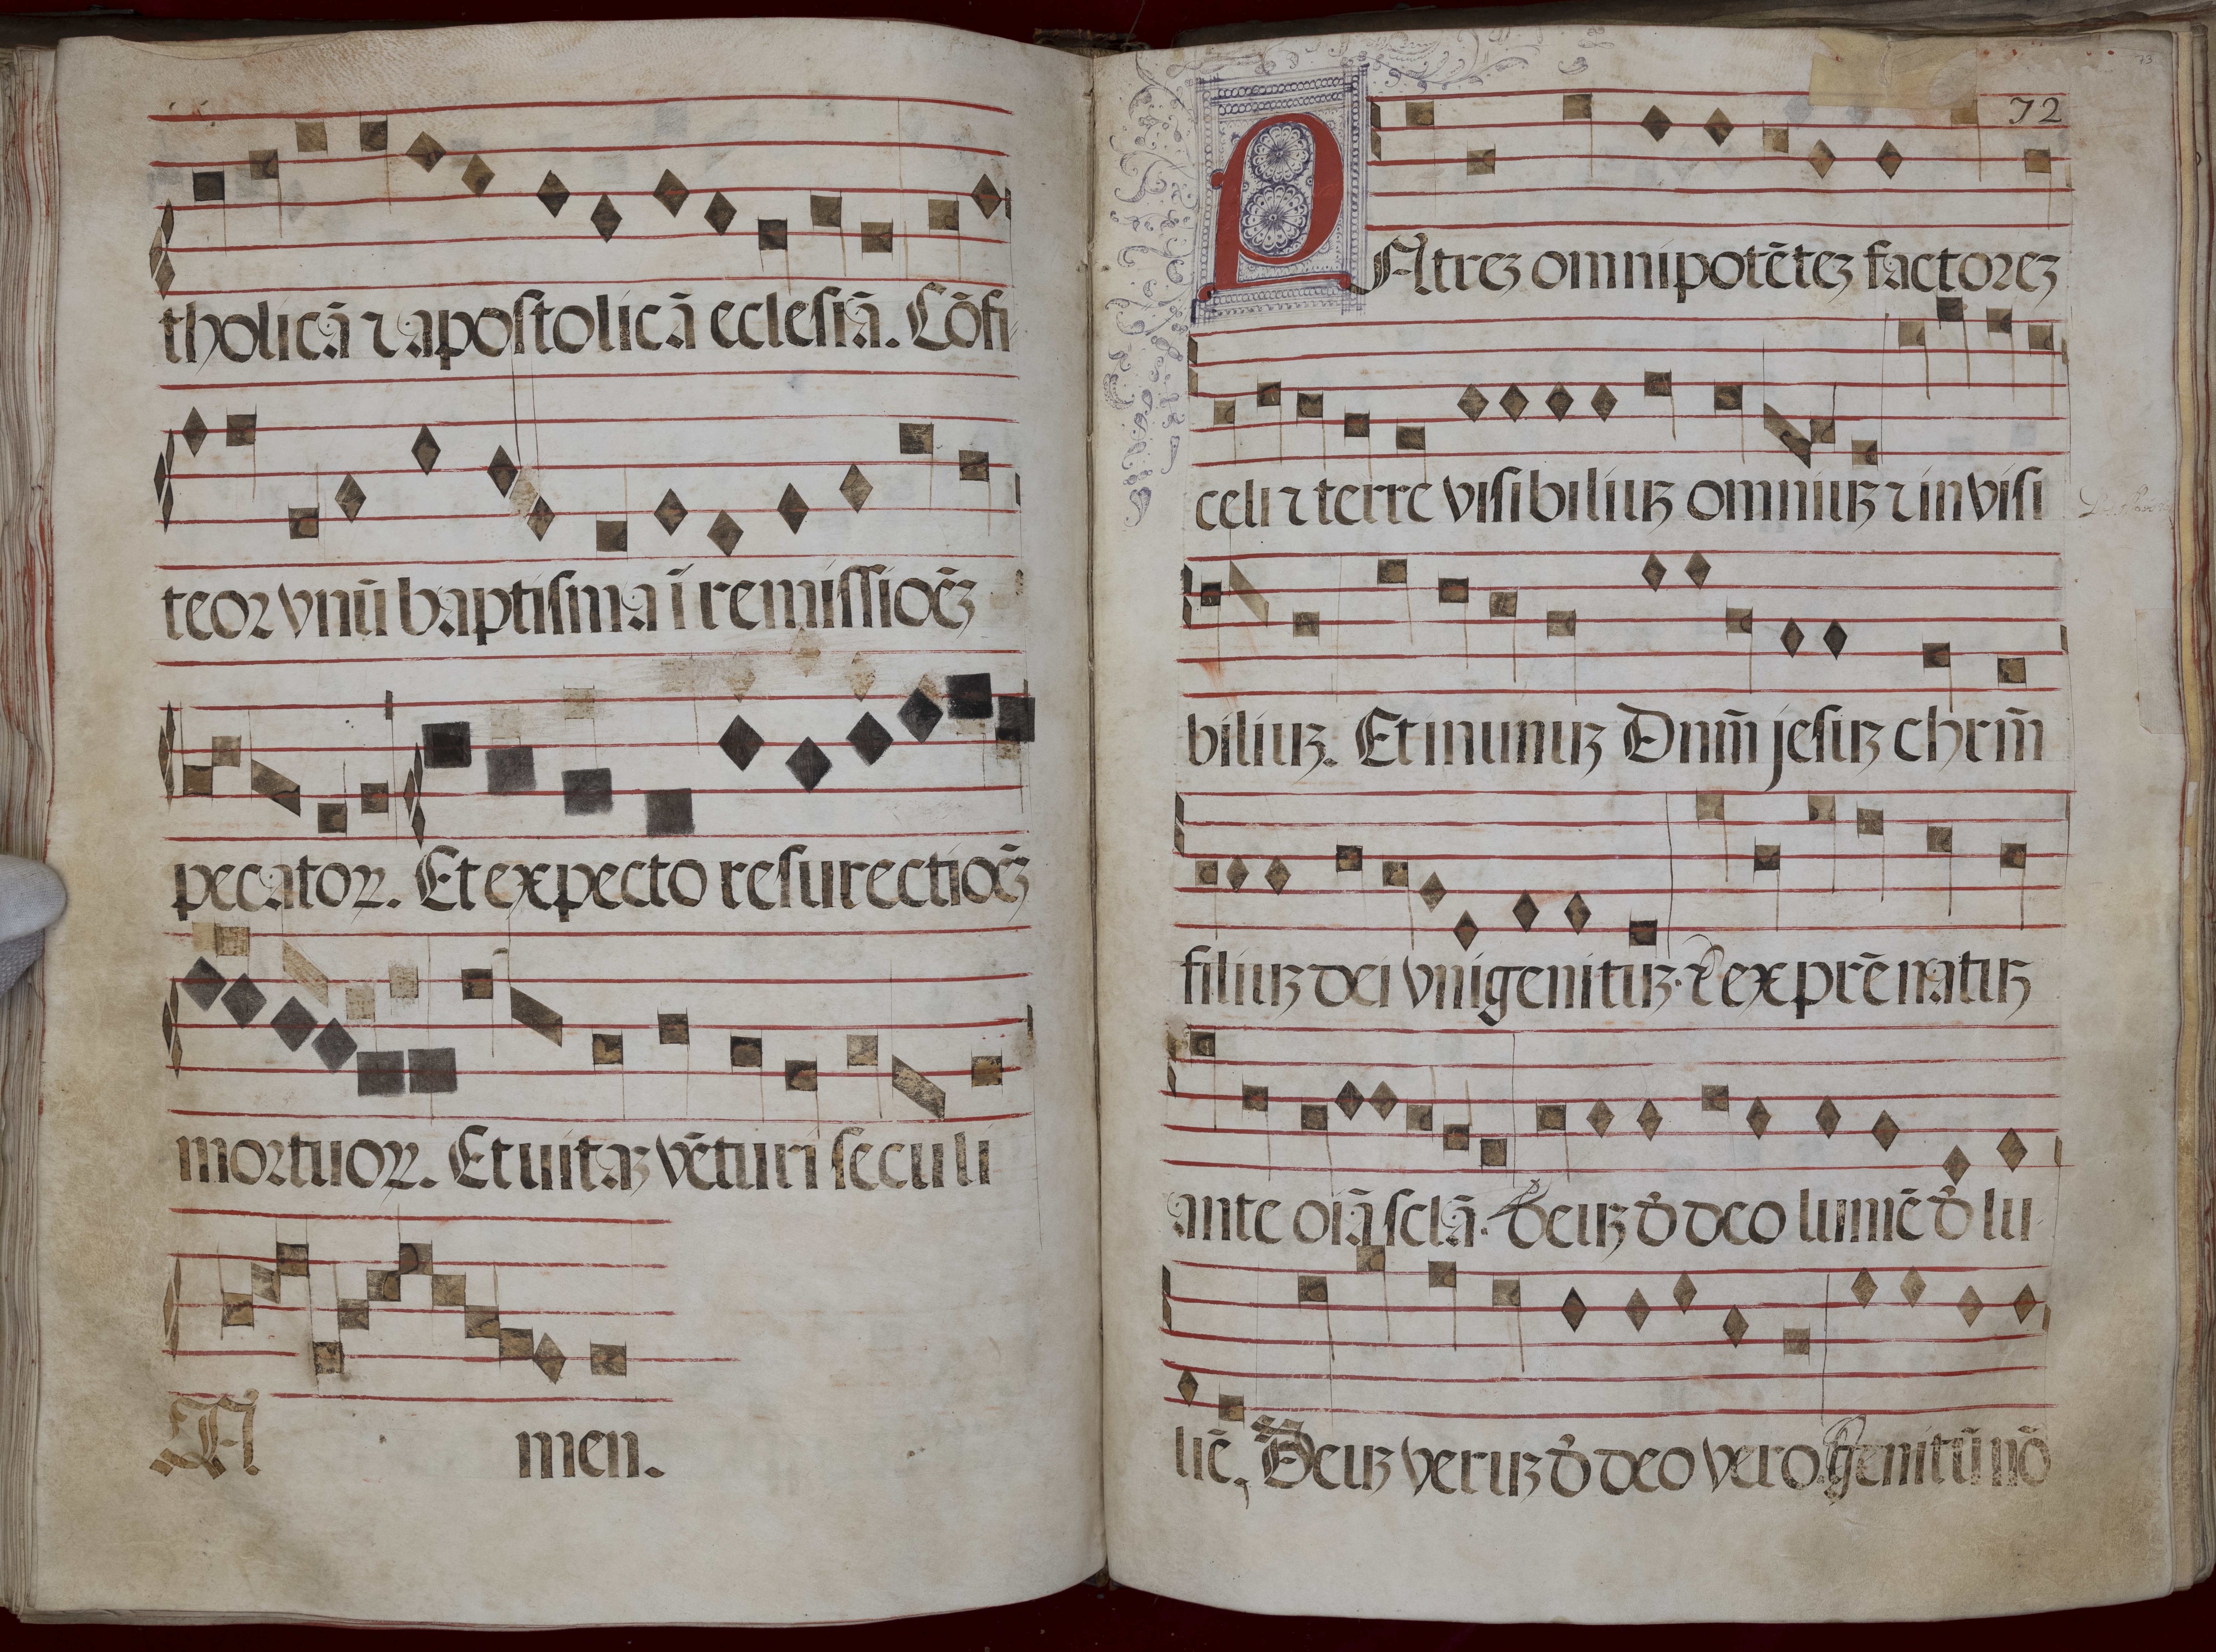 tholicā ⁊ apostolicā eclesiā. Cōfi-
teor vnū baptisma ī remissioēȝ
pecatoꝝ. Et expecto resurectioēȝ
mortuoꝝ. Et uitaȝ vēturi seculi
Amen.
72
73
PAtreȝ omnipotēteȝ factoreȝ
celi ⁊ terre visibiliuȝ omniuȝ ⁊ invisi
biliuȝ. Et in unuȝ Dnm̄ jesuȝ chrm̄
filiuȝ dei vnigenituȝ. ⁊ ex prē natuȝ
ante oiā sclā. deuȝ đ deo lumē đ lu-
mē, Deuȝ veruȝ đ deo vero. genitū nō